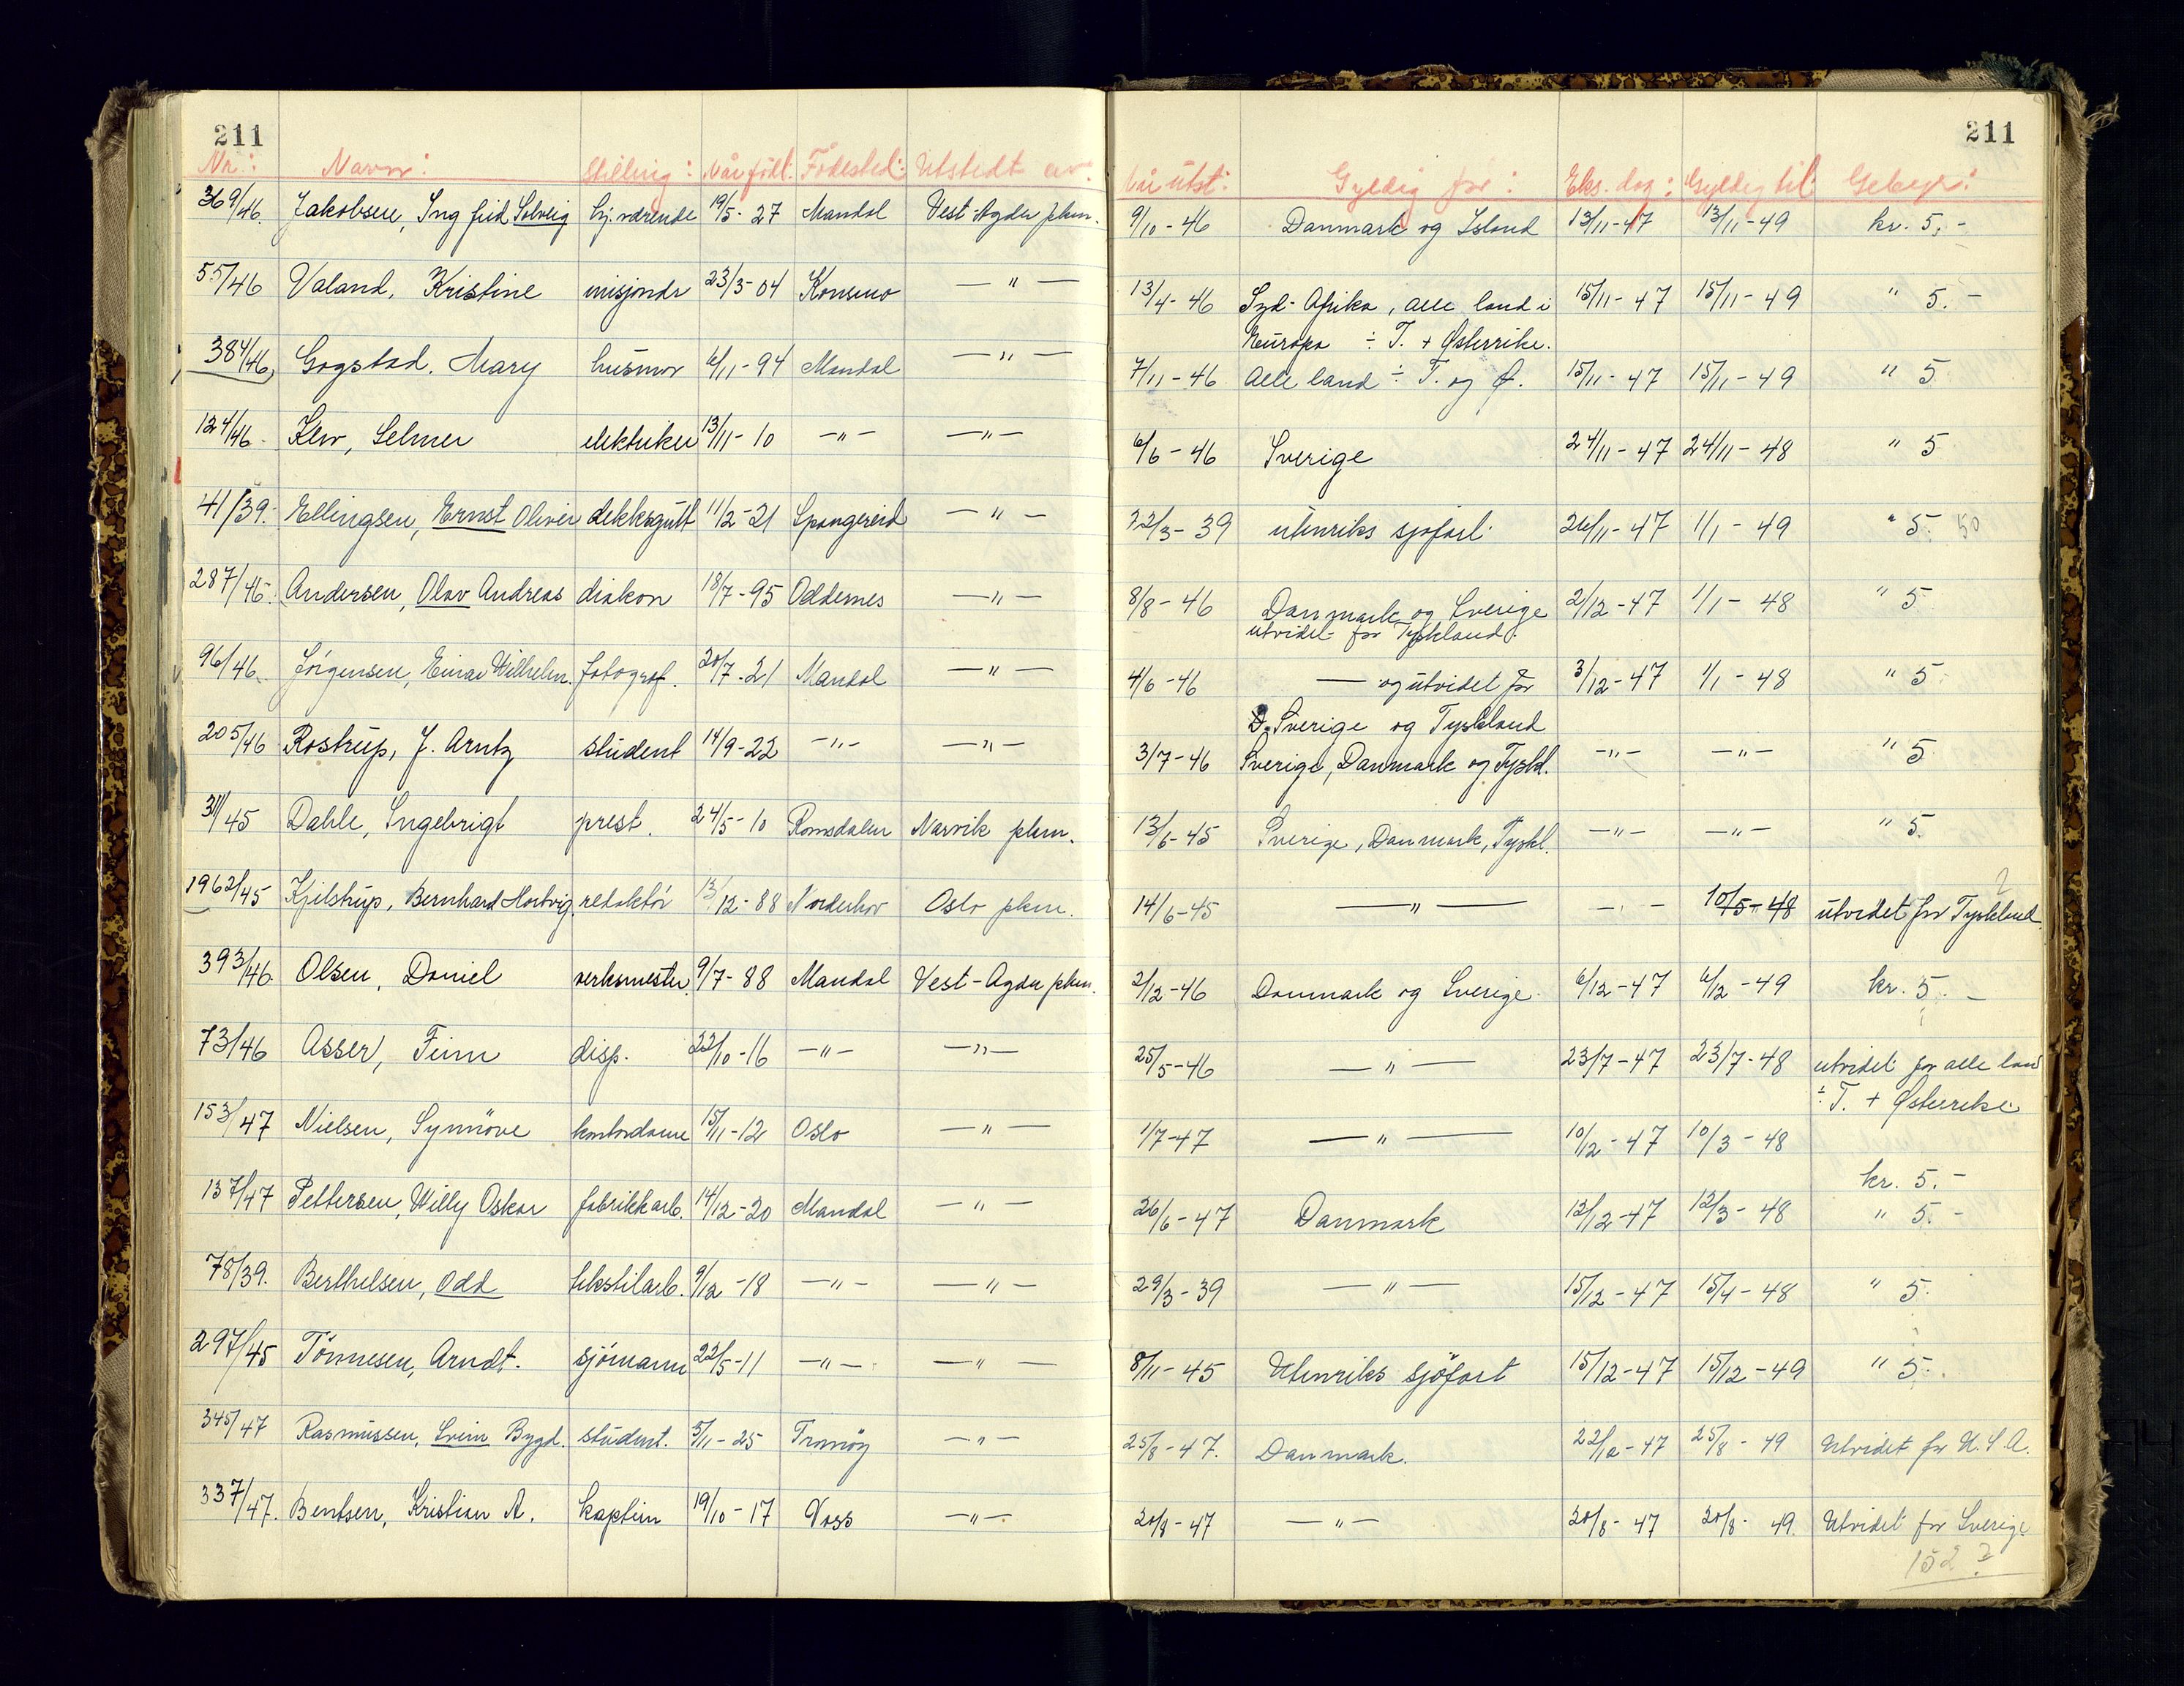 211
Nr.: Navn: Stilling: Når født: Fødested: Utstedt av:
369/46. Jakobsen, Ingfrid Solveig hj.værende 19/5-27 Mandal Vest-Agder pkm.
55/46 Valand, Kristine misjonær 23/3-04 Konsmo — " —
384/46, Gogstad, Mary husmor 6/11-94 Mandal — " —
124/46. Klev, Selmer elektriker 13/11-10 — " — — " —
41/39. Ellingsen, Ernst Oliver dekksgutt 11/2-21 Spangereid — " —
287/46. Andersen, Olav Andreas diakon 18/7-95 Oddernes — " —
96/46. Jörgensen, Einar Wilhelm. fotograf. 20/7-21 Mandal — " —
205/46 Rostrup, J. Arntz student 14/9-22 — " — — " —
311/45 Dahle, Ingebrigt prest. 24/5-10 Romsdalen Narvik pkm.
1962/45 Kjelstrup, Bernhard Hartvig. redaktör 13/12-88 Norderhov Oslo pkm.
393/46 Olsen, Daniel verksmester. 9/7-88 Mandal Vest-Agder pkm.
73/46 Asser, Finn disp. 22/10-16 — " — — " —
153/47 Nielsen, Synnöve kontordame 15/11-12 Oslo — " —
137/47 Pettersen, Willy Oskar fabrikkarb. 14/12-20 Mandal — " —
78/39. Berthelsen, Odd tekstilarb. 9/12-18 — " — — " —
297/45 Tönnesen, Arndt. sjömann 22/5-11 — " — — " —
345/47 Rasmussen, Svein Bygd. student. 5/11-25 Tromöy — " —
337/47. Bentsen, Kristian A. kaptein 19/10-17 Voss — " —
211
Når utst: Gyldig for: Eks. dag: Gyldig til: Gebyr:
9/10-46 Danmark og Island 13/11-47 13/11-49 kr. 5,-
13/4-46 Syd-Afrika, alle land i 15/11-47 15/11-49 " 5.-
Europa ÷ T. + Østerrike.
7/11-46 Alle land ÷ T. og Ø. 15/11-47 15/11-49 " 5
6/6-46 Sverige 24/11-47 24/11-48 " 5
22/3-39 utenriks sjøfart. 26/11-47 1/1-49 " 5. 50
8/8-46 Danmark og Sverige 2/12-47 1/1-48 " 5
utvidet for Tyskland.
4/6-46 — og utvidet for 3/12-47 1/1-48 " 5.
D. Sverige og Tyskland
3/7-46 Sverige, Danmark og Tyskl. — " — — " — " 5
13/6-45 Sverige, Danmark, Tyskl. — " — — " — " 5.
14/6-45 — " — — " — 10/5-48 utvidet for Tyskland
2/12-46 Danmark og Sverige. 6/12-47 6/12-49 kr. 5.-
25/5-46 — " — 23/7-47 23/7-48 utvidet for alle land
÷ T. + Østerrike
1/7-47 — " — 10/12-47 10/3-48
kr. 5.-
26/6-47 Danmark 12/12-47 12/3-48 " 5.-
29/3-39 — " — 15/12-47 15/4-48 " 5.
8/11-45 Utenriks sjöfart 15/12-47 15/12-49 " 5.
25/8-47. Danmark. 22/12-47 25/8-49 Utvidet for U.S.A.
20/8-47 — " — 20/8-47 20/8-49. Utvidet for Sverige